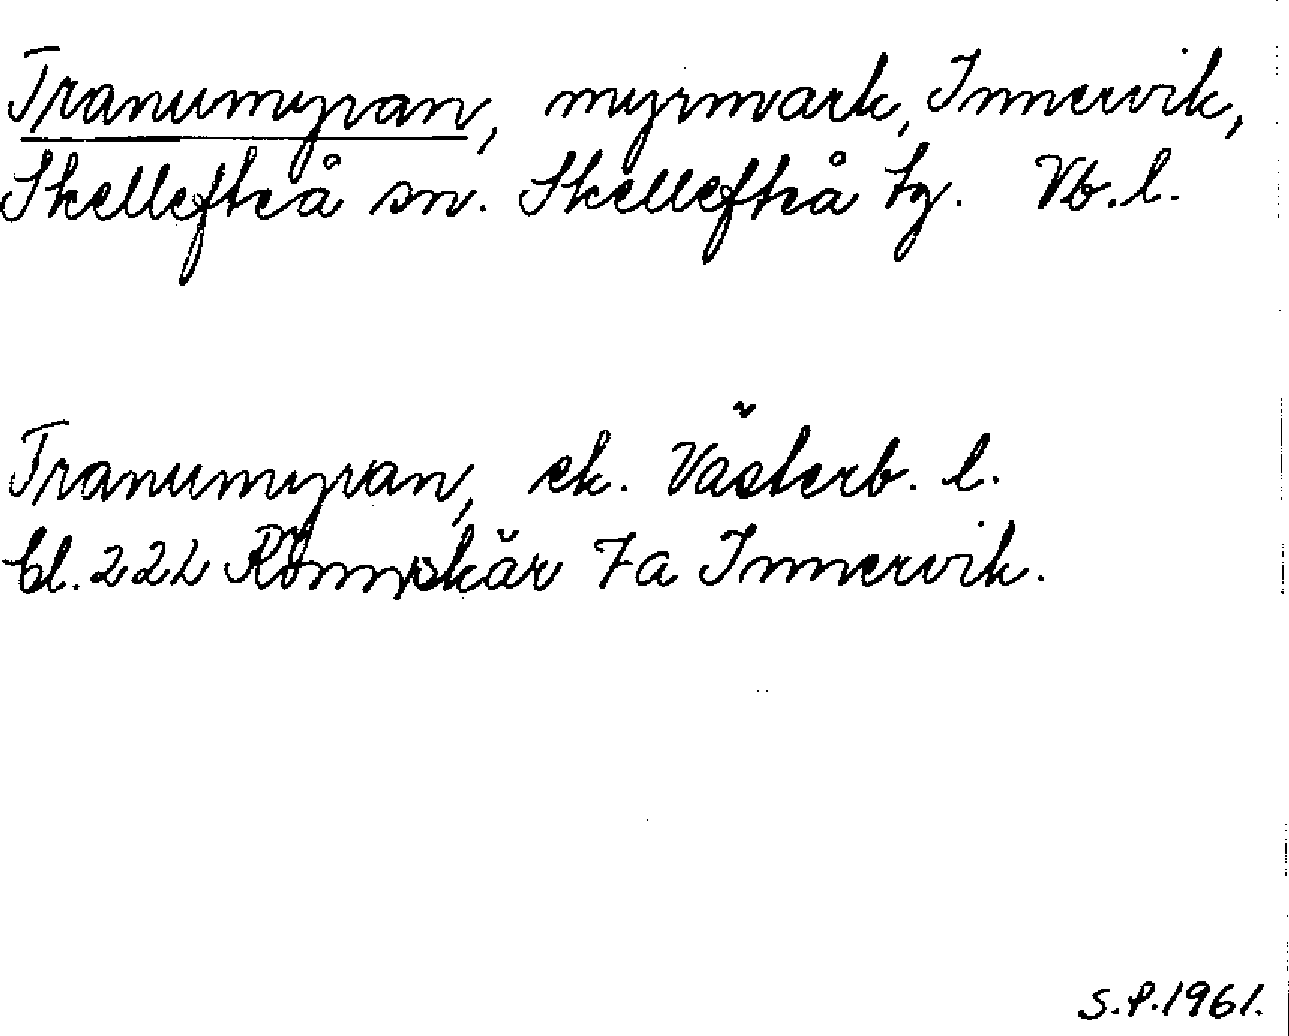 Tranumyran, myrmark, Innervik,
Skellefteå sn. Skellefteå tg. Vb.l.
Tranumyran, ek. Västerb. l.
bl. 222 Rönnskär 7a Innervik.
S.P.1961.